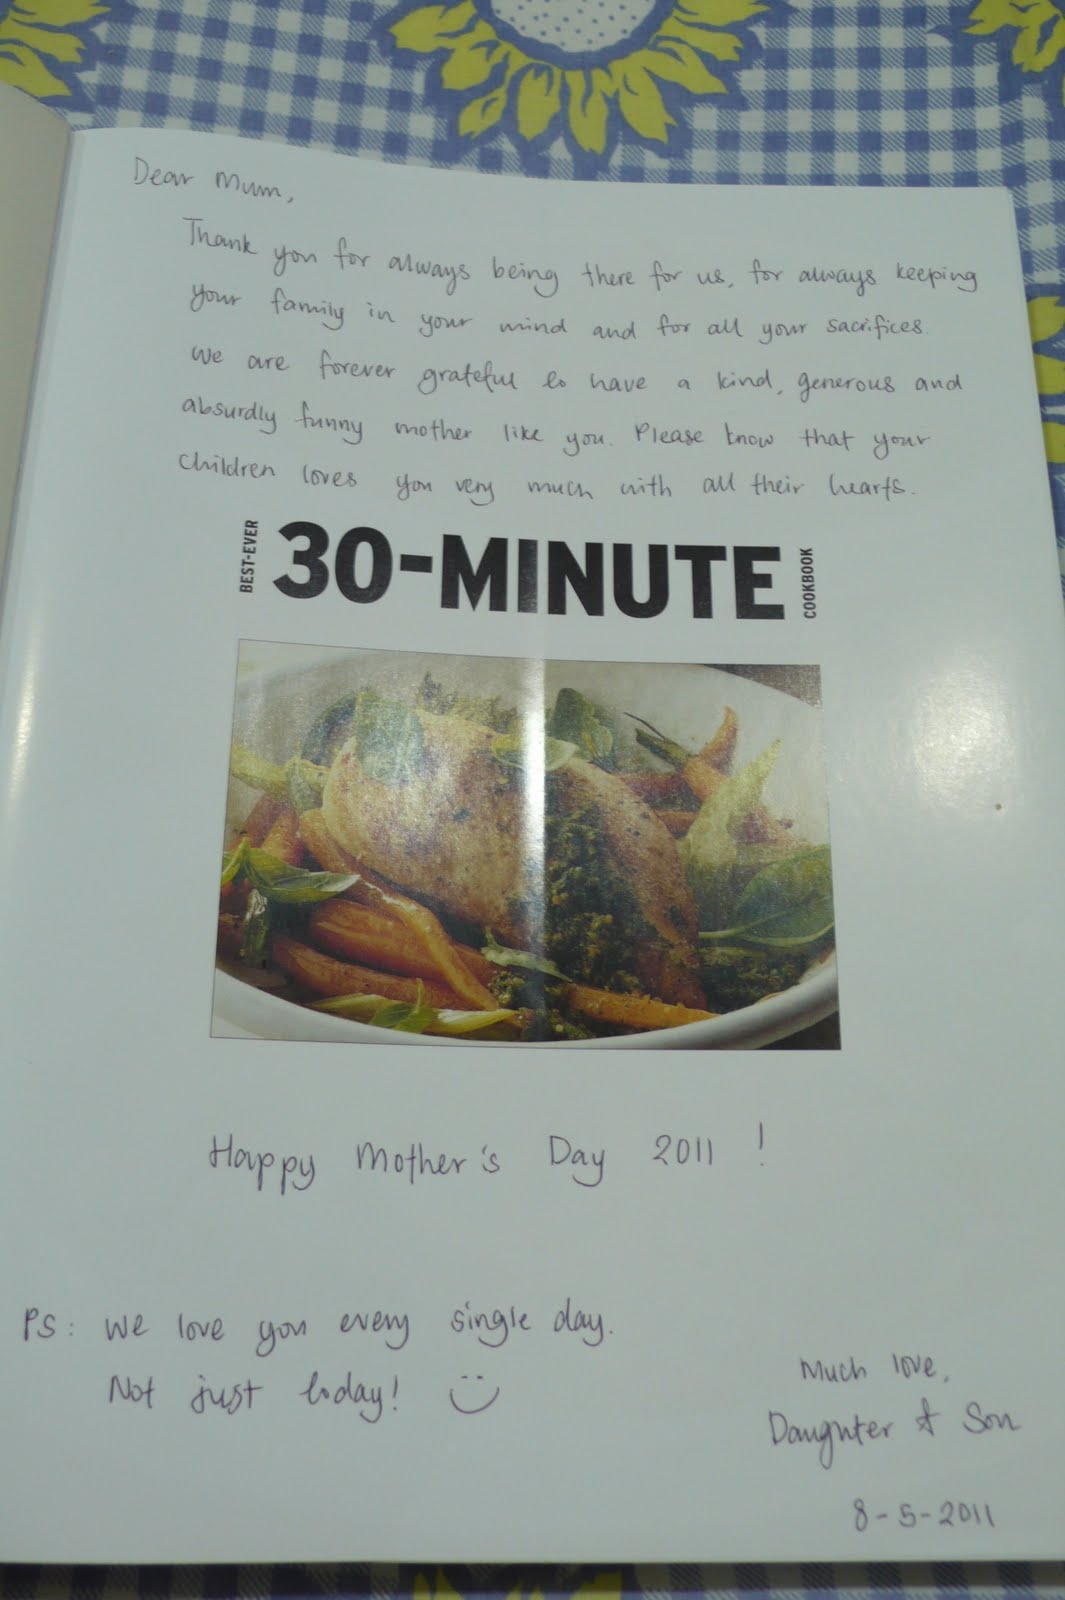 Dear Mum,
Thank you for always being there for us, for always keeping
your family in your mind and for all your sacrifices.
We are forever grateful to have a kind, generous and
absurdly funny mother like you. Please know that your
children loves you very much with all their hearts.
BEST-EVER
30-MINUTE
COOKBOOK
Happy Mother's Day 2011 !
PS: We love you every single day.
Not just today!
Much love,
Daughter & Son
8-5-2011